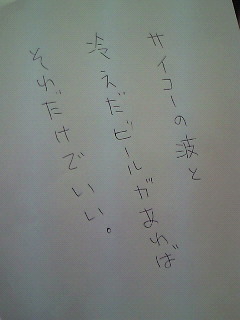 サイコーの波と
冷えだビールがあれば
それだけでいい。